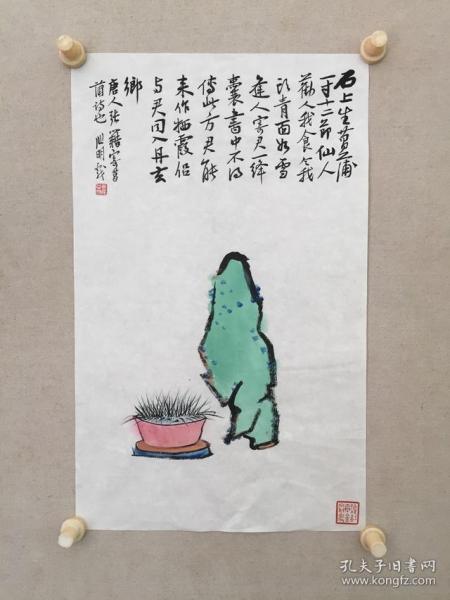 石上生菖蒲
一寸十二節仙人
勸人我食令我
頭青面如雪
逢人寄君一絳
囊書中不得
傳此方君能
來作栖霞侣
与君同入丹玄
鄉
唐人張籍寄菖
蒲詩也
孔夫子旧书网
www.kongfz.com